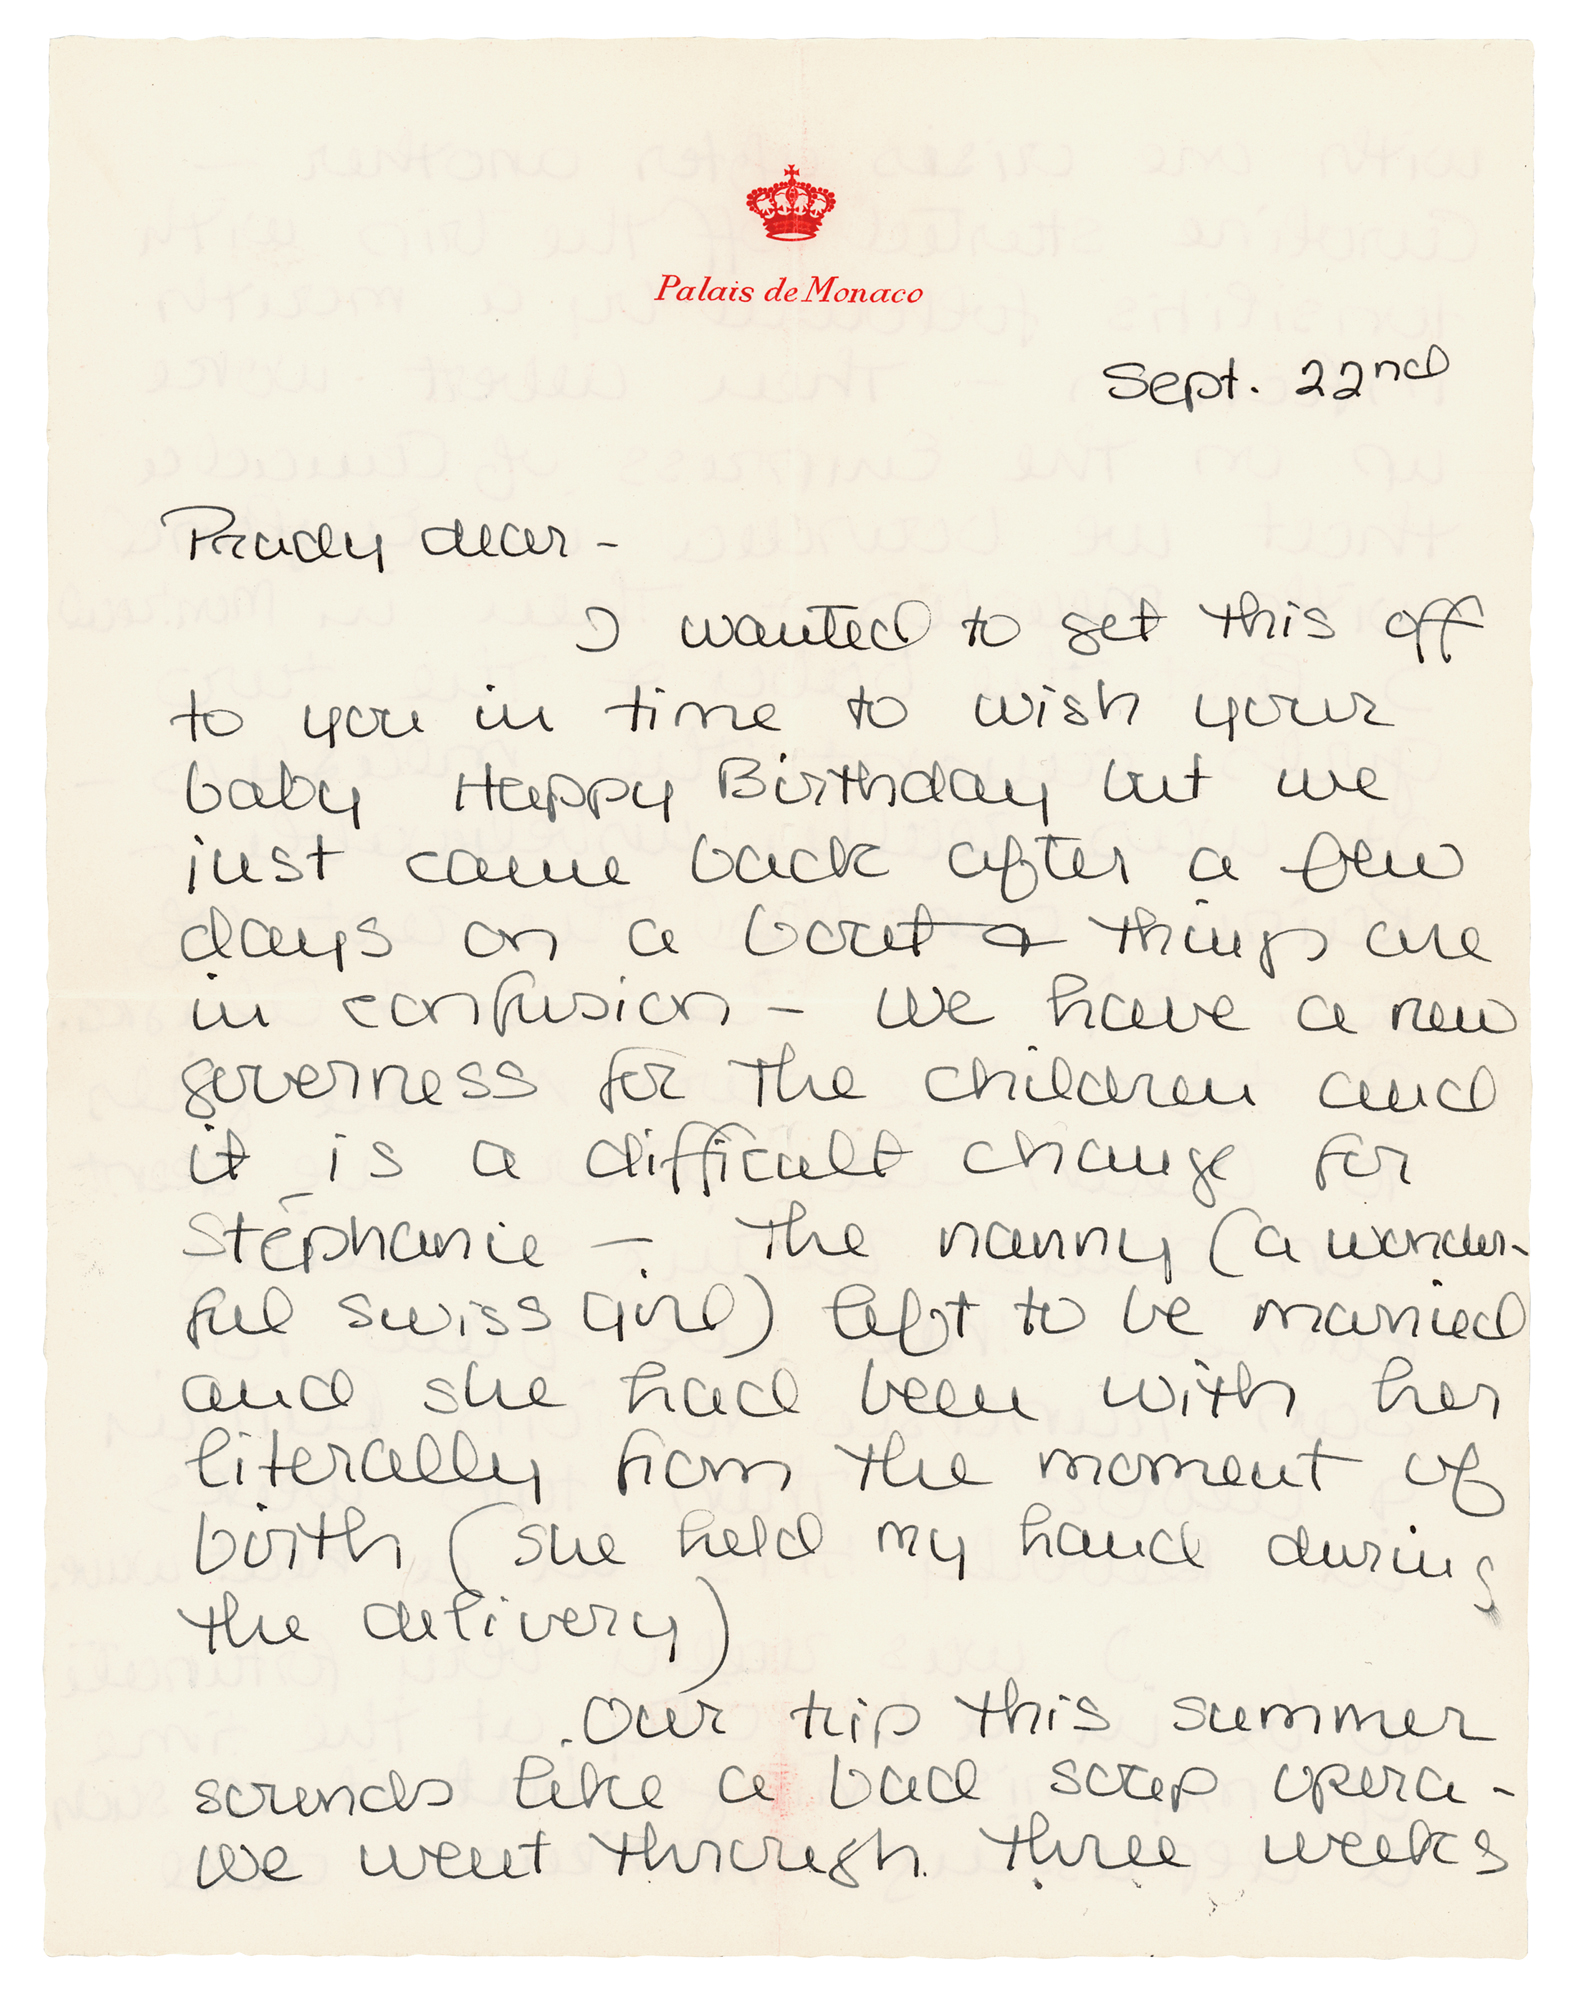 Palais de Monaco
Sept. 22nd
Prudy dear -
I wanted to get this off
to you in time to wish your
baby Happy Birthday but we
just came back after a few
days on a boat & things are
in confusion - We have a new
governess for the children and
it is a difficult change for
Stéphanie — The nanny (a wonder-
ful Swiss Girl) left to be married
and she had been with her
literally from the moment of
birth (she held my hand during
the delivery)
Our trip this summer
sounds like a bad soap opera -
We went through three weeks